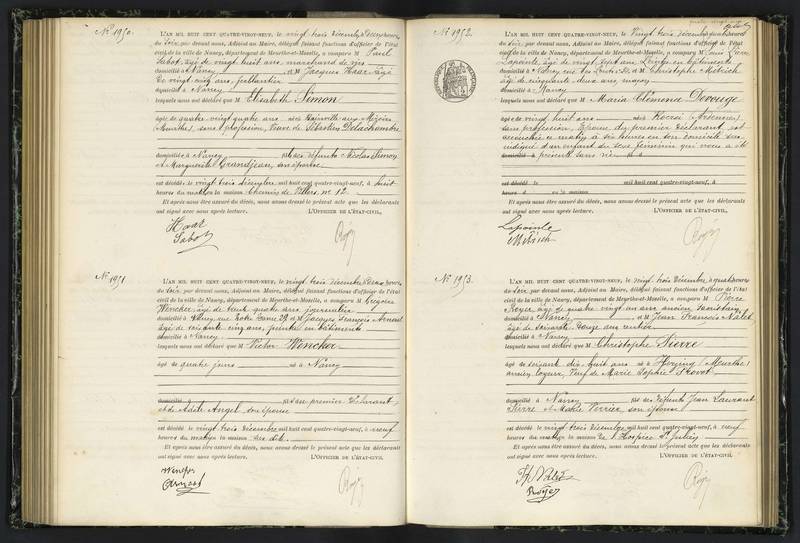 N° 1950.
L'AN MIL HUIT CENT QUATRE-VINGT-NEUF, le vingt trois Décembre à deux heures
du soir, par devant nous, Adjoint au Maire, délégué faisant fonctions d'officier de l'état
civil de la ville de Nancy, département de Meurthe-et-Moselle, a comparu M Paul
Sabot, âgé de vingt huit ans, marchand de
domicilié à Nancy et M Jacques Haas âgé
de vingt cinq ans, ferblantier
domicilié à Nancy
lesquels nous ont déclaré que M Elisabeth Simon
âgée de quatre vingt quatre ans née
(Meurthe) sans profession, Veuve de Sébastien Delachambre
domiciliée à Nancy fille des défunts Nicolas Simon
et Marguerite Grandjean, son épouse
est décédée le vingt trois décembre mil huit cent quatre-vingt-neuf, à huit
heures du matin en la maison Chemin de Villers, n° 12.
Et après nous être assuré du décès, nous avons dressé le présent acte que les déclarants
ont signé avec nous après lecture. L'OFFICIER DE L'ÉTAT-CIVIL,
Haas
Sabot
N° 1951
L'AN MIL HUIT CENT QUATRE-VINGT-NEUF, le vingt trois Décembre à deux heures
du soir, par devant nous, Adjoint au Maire, délégué faisant fonctions d'officier de l'état
civil de la ville de Nancy, département de Meurthe-et-Moselle, a comparu M Grégoire
Wencker, âgé de trente quatre ans, journalier
domicilié à Nancy, rue Notre Dame 29 et M Jacques François Arnout
âgé de soixante cinq ans, peintre en bâtiments
domicilié à Nancy
lesquels nous ont déclaré que M Victor Wencker
âgé de quatre jours né à Nancy
domicilié à fils du premier déclarant
et de Adèle Angel son épouse
est décédé le vingt trois Décembre mil huit cent quatre-vingt-neuf, à neuf
heures du matin en la maison des dits.
Et après nous être assuré du décès, nous avons dressé le présent acte que les déclarants
ont signé avec nous après lecture. L'OFFICIER DE L'ÉTAT-CIVIL,
Wencker
Arnout
N° 1952.
L'AN MIL HUIT CENT QUATRE-VINGT-NEUF, le Vingt trois Décembre à quatre heures
du soir, par devant nous, Adjoint au Maire, délégué faisant fonctions d'officier de l'état
civil de la ville de Nancy, département de Meurthe-et-Moselle, a comparu M Louis Pierre
Lapointe, âgé de vingt sept ans, peintre en bâtiments
domicilié à Nancy et M Christophe Metrich
âgé de cinquante deux ans, maçon
domicilié à Nancy
lesquels nous ont déclaré que M Maria Clémence Devouge
âgée de vingt huit ans née Rocroi (Ardennes)
sans profession, Epouse du premier déclarant est
accouchée ce matin à six heures en son domicile sus
indiqué d'un enfant du sexe féminin qui nous a été
présenté sans vie
est décédé le mil huit cent quatre-vingt-neuf, à
heures d en la maison
Et après nous être assuré du décès, nous avons dressé le présent acte que les déclarants
ont signé avec nous après lecture. L'OFFICIER DE L'ÉTAT-CIVIL,
Lapointe
Metrich
N° 1953.
L'AN MIL HUIT CENT QUATRE-VINGT-NEUF, le vingt trois Décembre à quatre heures
du soir, par devant nous, Adjoint au Maire, délégué faisant fonctions d'officier de l'état
civil de la ville de Nancy, département de Meurthe-et-Moselle, a comparu M Pierre
Royer, âgé de quatre vingt un ans, ancien
domicilié à Nancy et M Jean François Nalet
âgé de soixante douze ans rentier
domicilié à Nancy
lesquels nous ont déclaré que M Christophe Pierre
âgé de soixante dix huit ans né à Herzing (Meurthe)
ancien loueur, Veuf de Marie SophiePrevot
domicilié à Nancy fils des défunts Jean Laurent
Pierre et Marie Perrier son épouse
est décédé le vingt trois décembre mil huit cent quatre-vingt-neuf, à neuf
heures du matin en la maison de l'Hospice St Julien
Et après nous être assuré du décès, nous avons dressé le présent acte que les déclarants
ont signé avec nous après lecture. L'OFFICIER DE L'ÉTAT-CIVIL,
Nalet
Royer